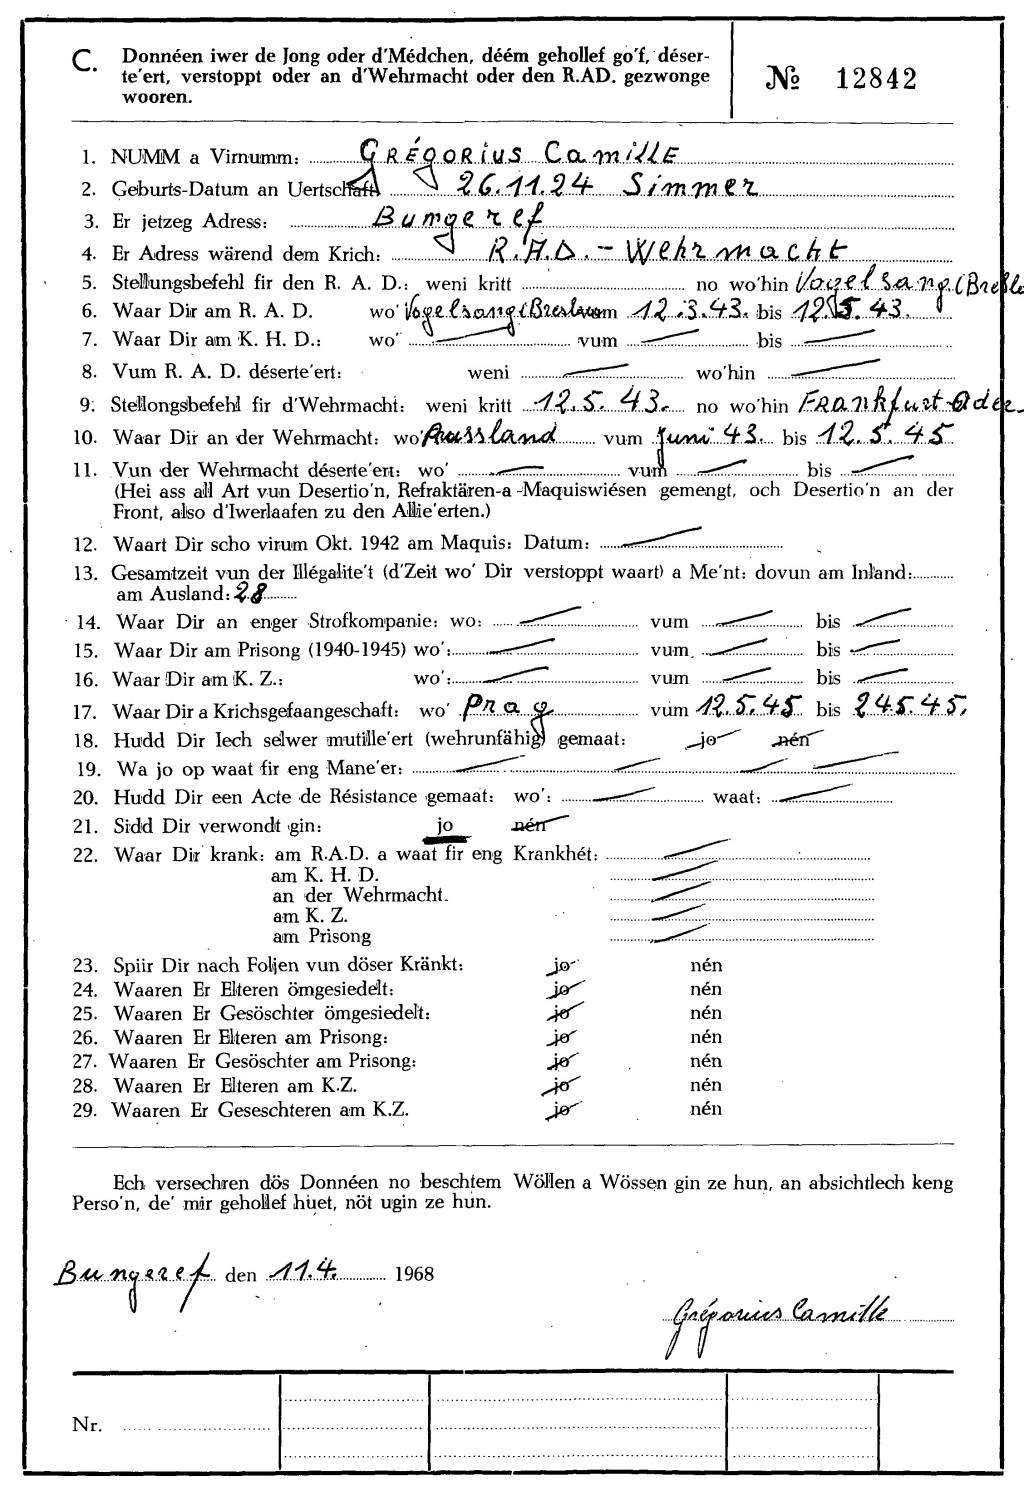 C. Donnéen iwer de Jong oder d'Médchen, déém gehollef go'f, déser-
te'ert, verstoppt oder an d'Wehrmacht oder den R.AD. gezwonge
wooren.
№ 12842
1. NUMM a Virnumm: GRÉGORiUS CamillE
2. Geburts-Datum an Uertschaft 26.11.24 Simmer
3. Er jetzeg Adress: Bungeref
4. Er Adress wärend dem Krich: R.A.D. - Wehrmacht
5. Stellungsbefehl fir den R. A. D.: weni kritt no wo'hin Vogelsang (Breslo
6. Waar Dir am R. A. D. wo' Vogelsang (Breslau vum 12.3.43. bis 12.5.43.
7. Waar Dir am K. H. D.: wo' — vum — bis —
8. Vum R. A. D. déserte'ert: weni — wo'hin —
9. Stellongsbefehl fir d'Wehrmacht: weni kritt 12.5.43. no wo'hin FRankfurt-Oder.
10. Waar Dir an der Wehrmacht: wo' Russland vum Juni 43. bis 12.5.45
11. Vun der Wehrmacht déserte'ert: wo' — vum — bis —
(Hei ass all Art vun Desertio'n, Refraktären-a-Maquiswiésen gemengt, och Desertio'n an der
Front, also d'Iwerlaafen zu den Allie'erten.)
12. Waart Dir scho virum Okt. 1942 am Maquis: Datum: —
13. Gesamtzeit vun der Illégalite't (d'Zeit wo' Dir verstoppt waart) a Me'nt: dovun am Inland:
am Ausland: 28
14. Waar Dir an enger Strofkompanie: wo: — vum — bis —
15. Waar Dir am Prisong (1940-1945) wo': — vum — bis —
16. Waar Dir am K. Z.: wo': — vum — bis —
17. Waar Dir a Krichsgefaangeschaft: wo' Prag vum 12.5.45 bis 24.5.45.
18. Hudd Dir Iech selwer mutille'ert (wehrunfähig) gemaat: jo nén
19. Wa jo op waat fir eng Mane'er: — — — —
20. Hudd Dir een Acte de Résistance gemaat: wo': — waat: —
21. Sidd Dir verwondt gin: jo nén
22. Waar Dir krank: am R.A.D. a waat fir eng Krankhét: —
am K. H. D. —
an der Wehrmacht. —
am K. Z. —
am Prisong —
23. Spiir Dir nach Foljen vun döser Kränkt: jo nén
24. Waaren Er Elteren ömgesiedelt: jo nén
25. Waaren Er Gesöschter ömgesiedelt: jo nén
26. Waaren Er Elteren am Prisong: jo nén
27. Waaren Er Gesöschter am Prisong: jo nén
28. Waaren Er Elteren am K.Z. jo nén
29. Waaren Er Geseschteren am K.Z. jo nén
Ech versechren dös Donnéen no beschtem Wöllen a Wössen gin ze hun, an absichtlech keng
Perso'n, de' mir gehollef huet, nöt ugin ze hun.
Bungeref den 11.4. 1968
Grégorius Camille
Nr.